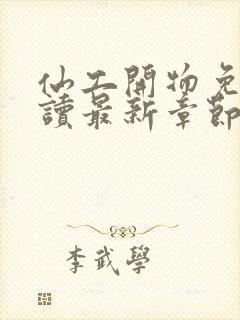 仙工開物免
讀最新章節
李武學